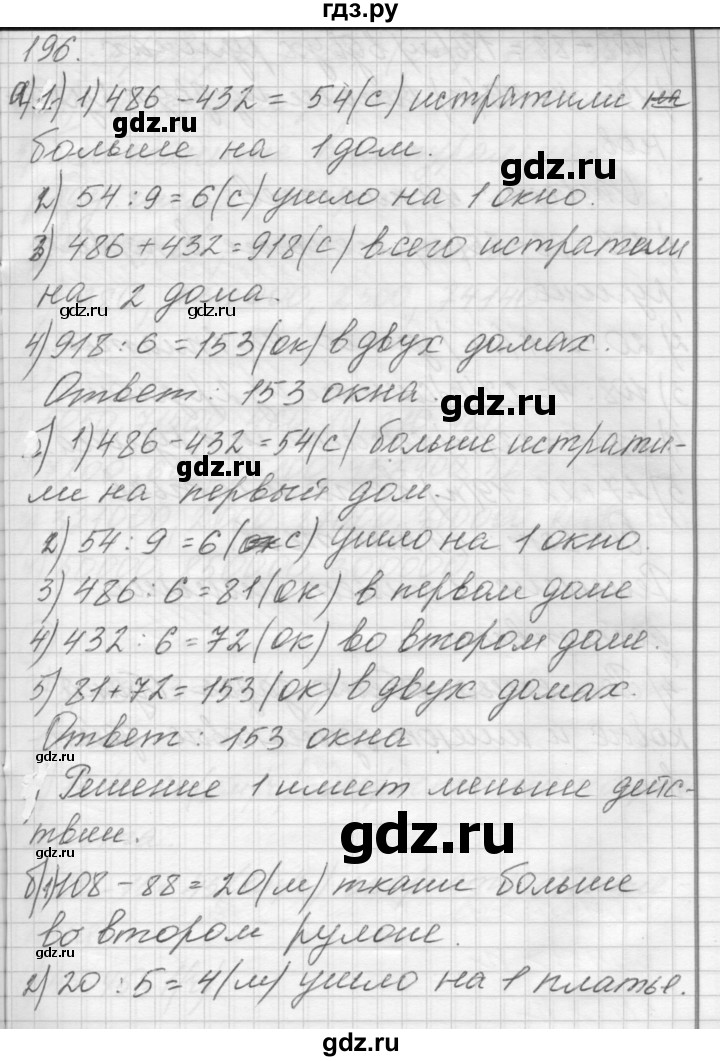 гдз.ру
196.
а) 1) 1) 486 - 432 = 54(с) истратили на
больше на 1 дом.
2) 54 : 9 = 6(с) ушло на 1 окно.
3) 486 + 432 = 918(с) всего истратили
на 2 дома.
4) 918 : 6 = 153(ок) в двух домах.
Ответ: 153 окна.
1) 486 - 432 = 54(с) больше истрати-
ли на первый дом.
2) 54 : 9 = 6(с) ушло на 1 окно.
3) 486 : 6 = 81(ок) в первом доме
4) 432 : 6 = 72(ок) во втором доме.
5) 81 + 72 = 153(ок) в двух домах.
Ответ: 153 окна.
Решение 1 имеет меньше дейс-
твии.
б) 1) 108 - 88 = 20(м) ткани больше
во втором рулоне.
2) 20 : 5 = 4(м) ушло на 1 платье.
gdz.ru
gdz.ru
gdz.ru
gdz.ru
gdz.ru
gdz.ru
gdz.ru
gdz.ru
gdz.ru
gdz.ru
gdz.ru
gdz.ru